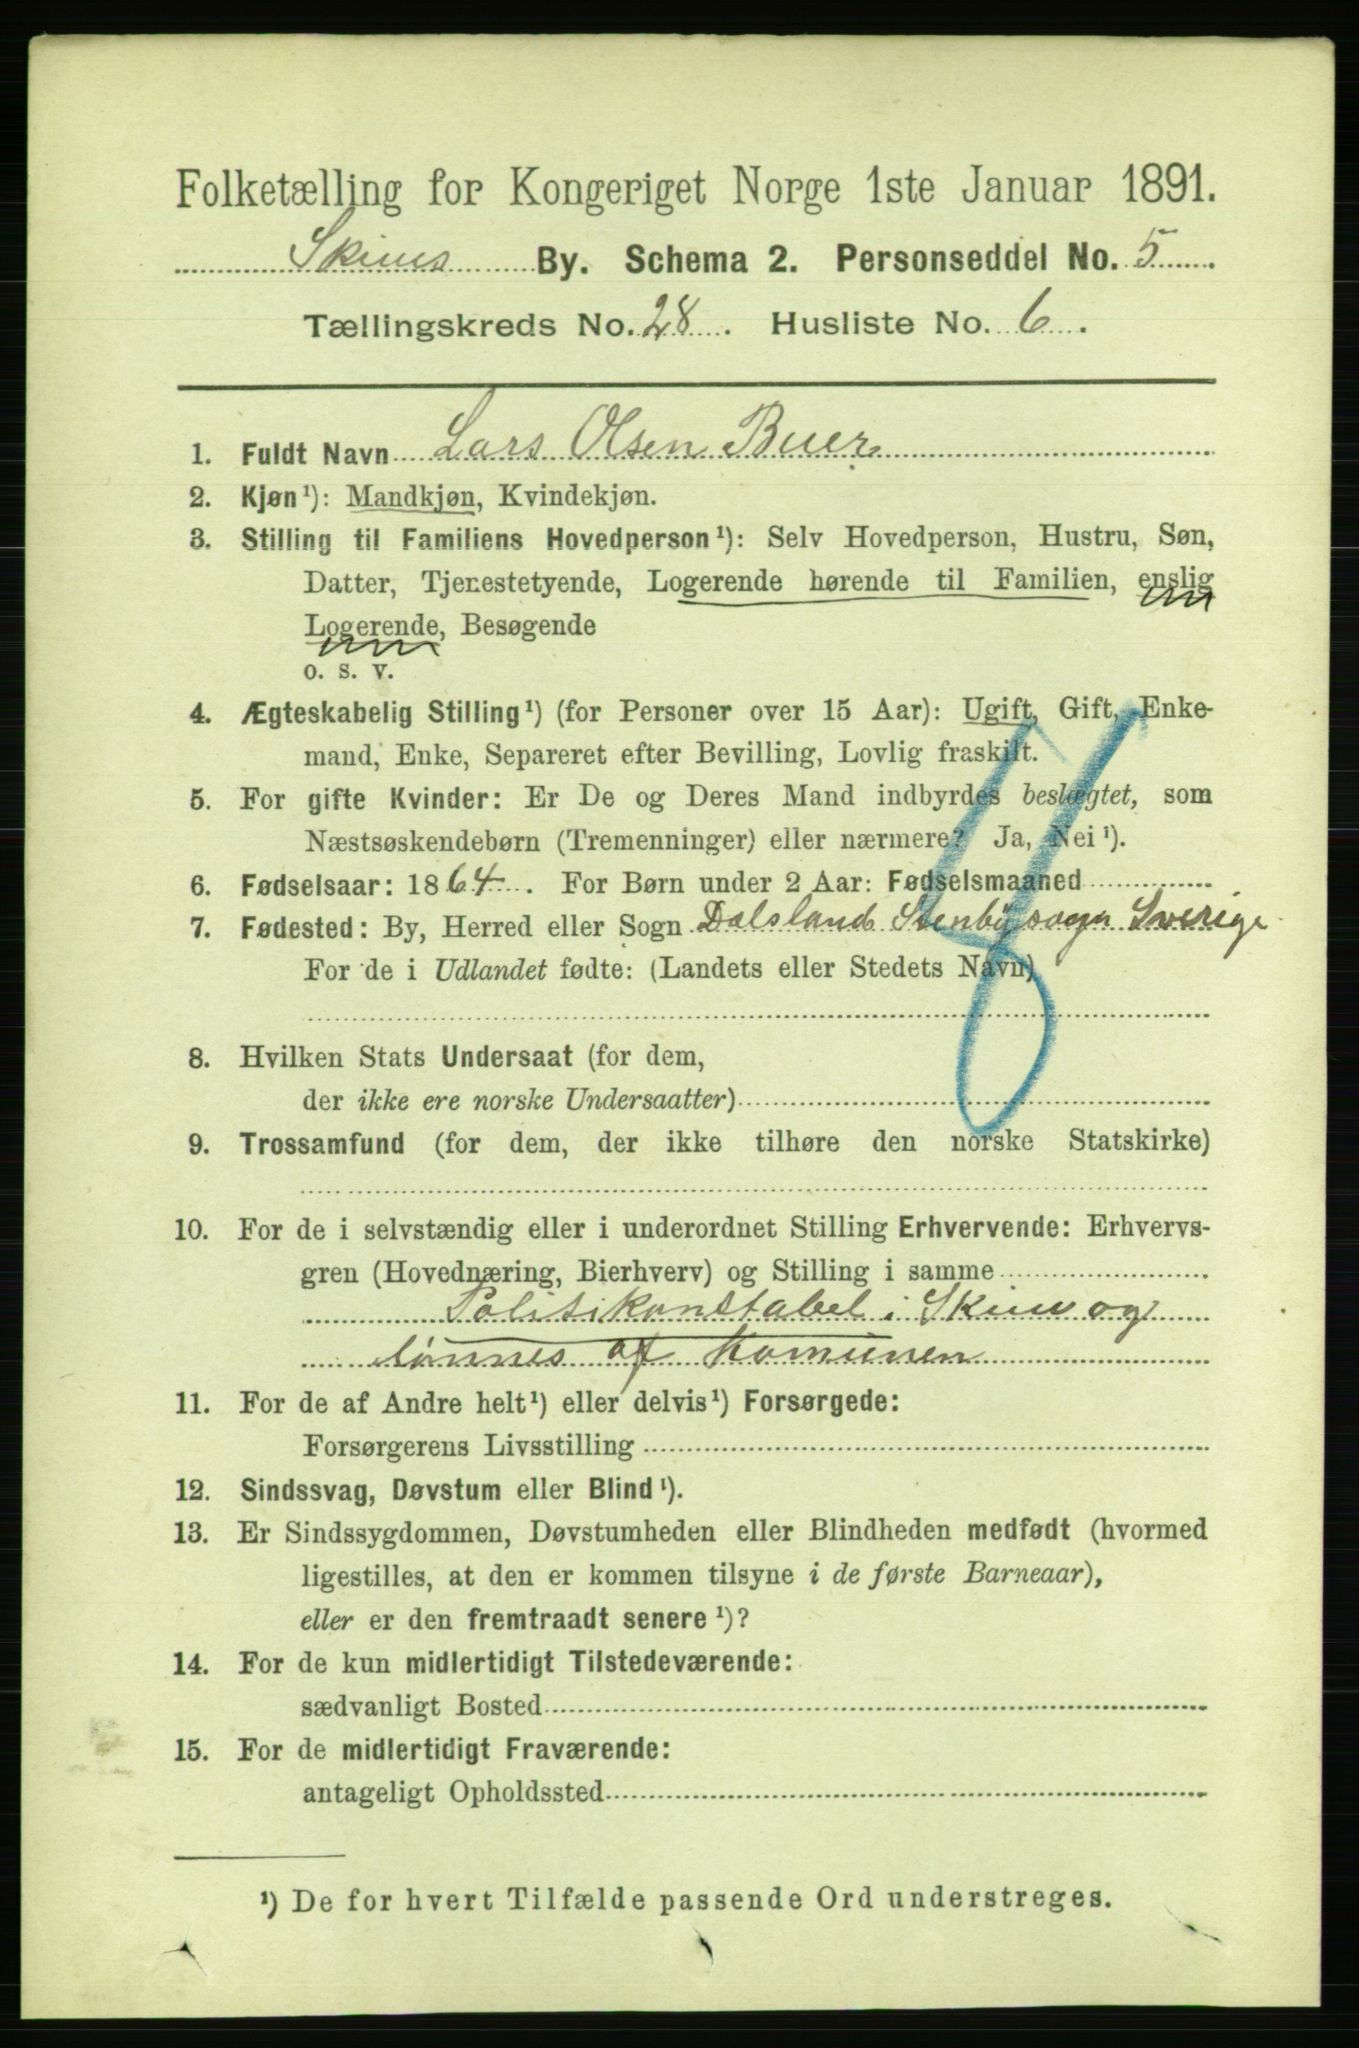 Folketælling for Kongeriget Norge 1ste Januar 1891.
Skiens By. Schema 2. Personseddel No. 5
Tællingskreds No. 28. Husliste No. 6.
1. Fuldt Navn Lars Olsen Buer
2. Kjøn¹): Mandkjøn, Kvindekjøn.
3. Stilling til Familiens Hovedperson¹): Selv Hovedperson, Hustru, Søn,
Datter, Tjenestetyende, Logerende hørende til Familien, enslig
Logerende, Besøgende
o. s. v.
4. Ægteskabelig Stilling¹) (for Personer over 15 Aar): Ugift, Gift, Enke-
mand, Enke, Separeret efter Bevilling, Lovlig fraskilt.
5. For gifte Kvinder: Er De og Deres Mand indbyrdes beslægtet, som
Næstsøskendebørn (Tremenninger) eller nærmere? Ja, Nei¹).
6. Fødselsaar: 1864. For Børn under 2 Aar: Fødselsmaaned
7. Fødested: By, Herred eller Sogn Dalsland Stenby sogn Sverige
For de i Udlandet fødte: (Landets eller Stedets Navn)
8. Hvilken Stats Undersaat (for dem,
der ikke ere norske Undersaatter)
9. Trossamfund (for dem, der ikke tilhøre den norske Statskirke)
10. For de i selvstændig eller i underordnet Stilling Erhvervende: Erhvervs-
gren (Hovednæring, Bierhverv) og Stilling i samme
Politikonstabel i Skien og
lønnes af Komunen
11. For de af Andre helt¹) eller delvis¹) Forsørgede:
Forsørgerens Livsstilling
12. Sindssvag, Døvstum eller Blind¹).
13. Er Sindssygdommen, Døvstumheden eller Blindheden medfødt (hvormed
ligestilles, at den er kommen tilsyne i de første Barneaar),
eller er den fremtraadt senere¹)?
14. For de kun midlertidigt Tilstedeværende:
sædvanligt Bosted
15. For de midlertidigt Fraværende:
antageligt Opholdssted
¹) De for hvert Tilfælde passende Ord understreges.